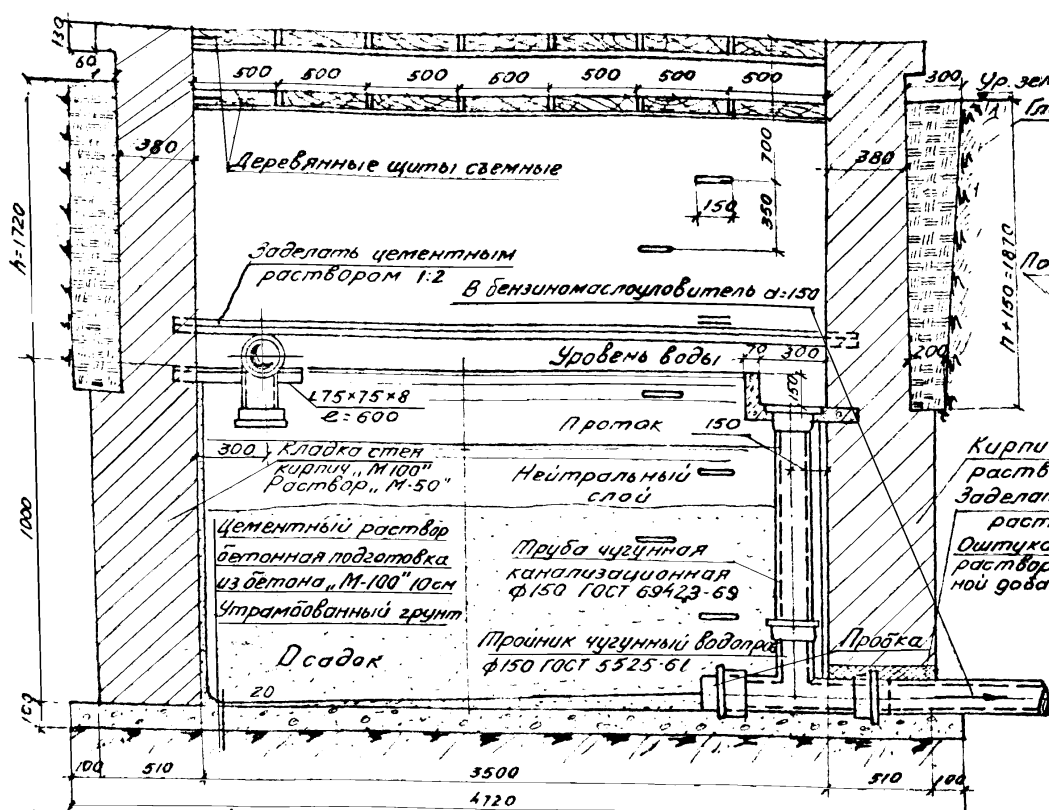 130
60
500 500 500 600 500 500 500
300 Ур. зем
Гл
380
Деревянные щиты съемные
700
380
150
350
h=1720
Заделать цементным
раствором 1:2
В бензиномаслоуловитель d=150
По
n+150=1870
Уровень воды
70 300
200
150
L75×75×8
ℓ=600
Проток
150
300
Кладка стен
кирпич „М100"
Раствор „М-50"
Нейтральный
слой
Кирпи
раств
Заделат
раст
Оштука
раствор
ной доба
1000
Цементный раствор
бетонная подготовка
из бетона „М-100" 10см
Утрамбованный грунт
Труба чугунная
канализационная
ф150 ГОСТ 69423-69
Тройник чугунный водопров
ф150 ГОСТ 5525-61
Пробка
Осадок
20
100 510 3500 510 100
4720